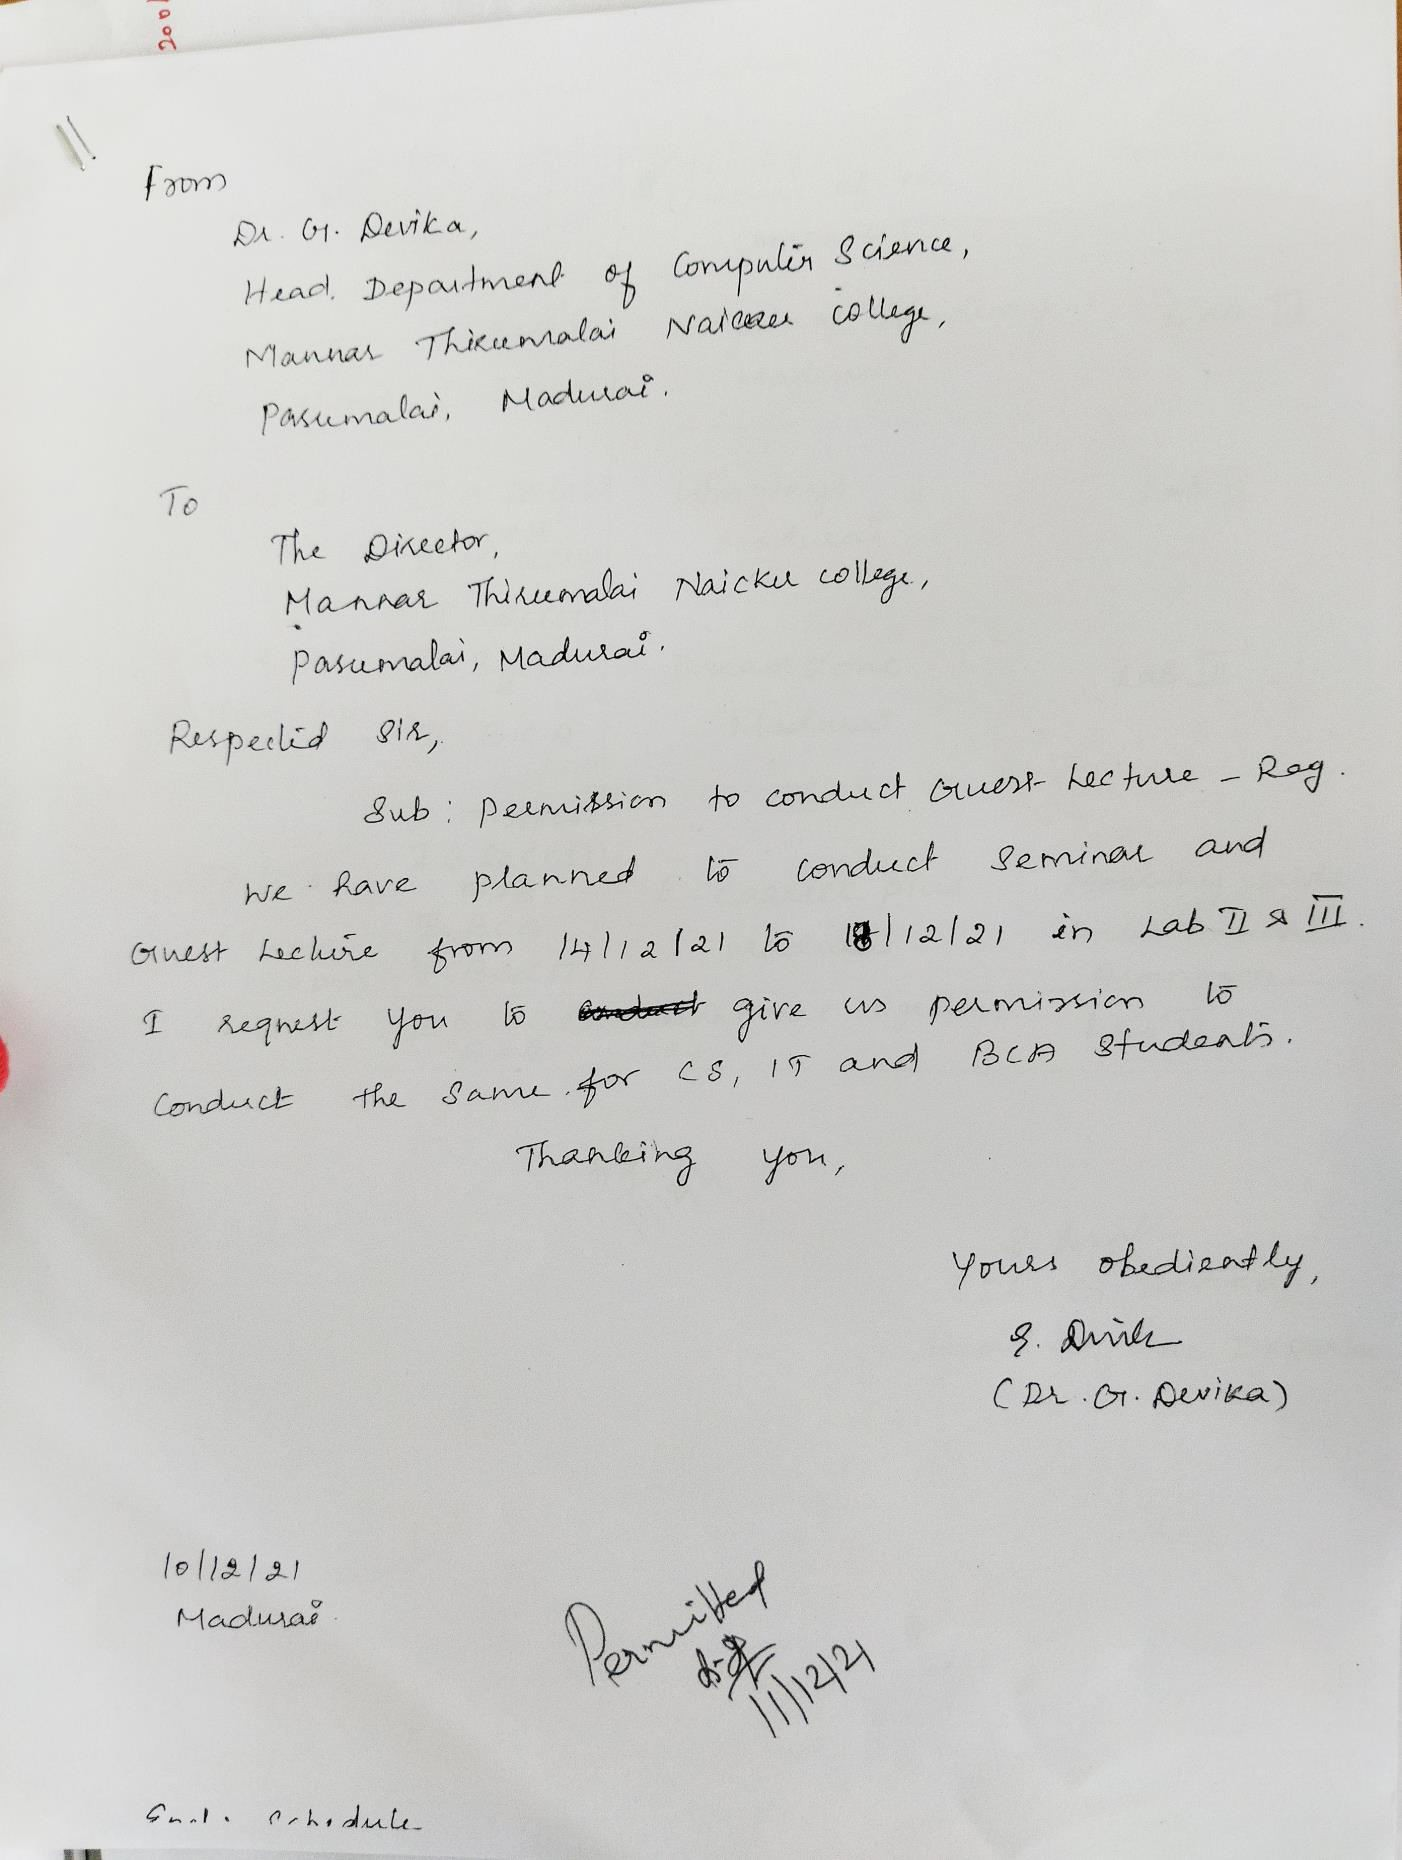 200
From
Dr. G. Devika,
Head. Department of Computer Science,
Mannar Thirumalai Naicker College,
Pasumalai, Madurai.
To
The Director,
Mannar Thirumalai Naicker College,
Pasumalai, Madurai.
Respected Sir,
Sub: Permission to conduct Guest Lecture - Reg.
We have planned to conduct Seminar and
Guest Lecture from 14/12/21 to 18/12/21 in Lab II & III.
I request you to conduct give us permission to
Conduct the same for CS, IT and BCA Students.
Thanking you,
Yours obediently,
(Dr. G. Devika)
10/12/21
Madurai
Permitted
11/12/21
Encl. Schedule